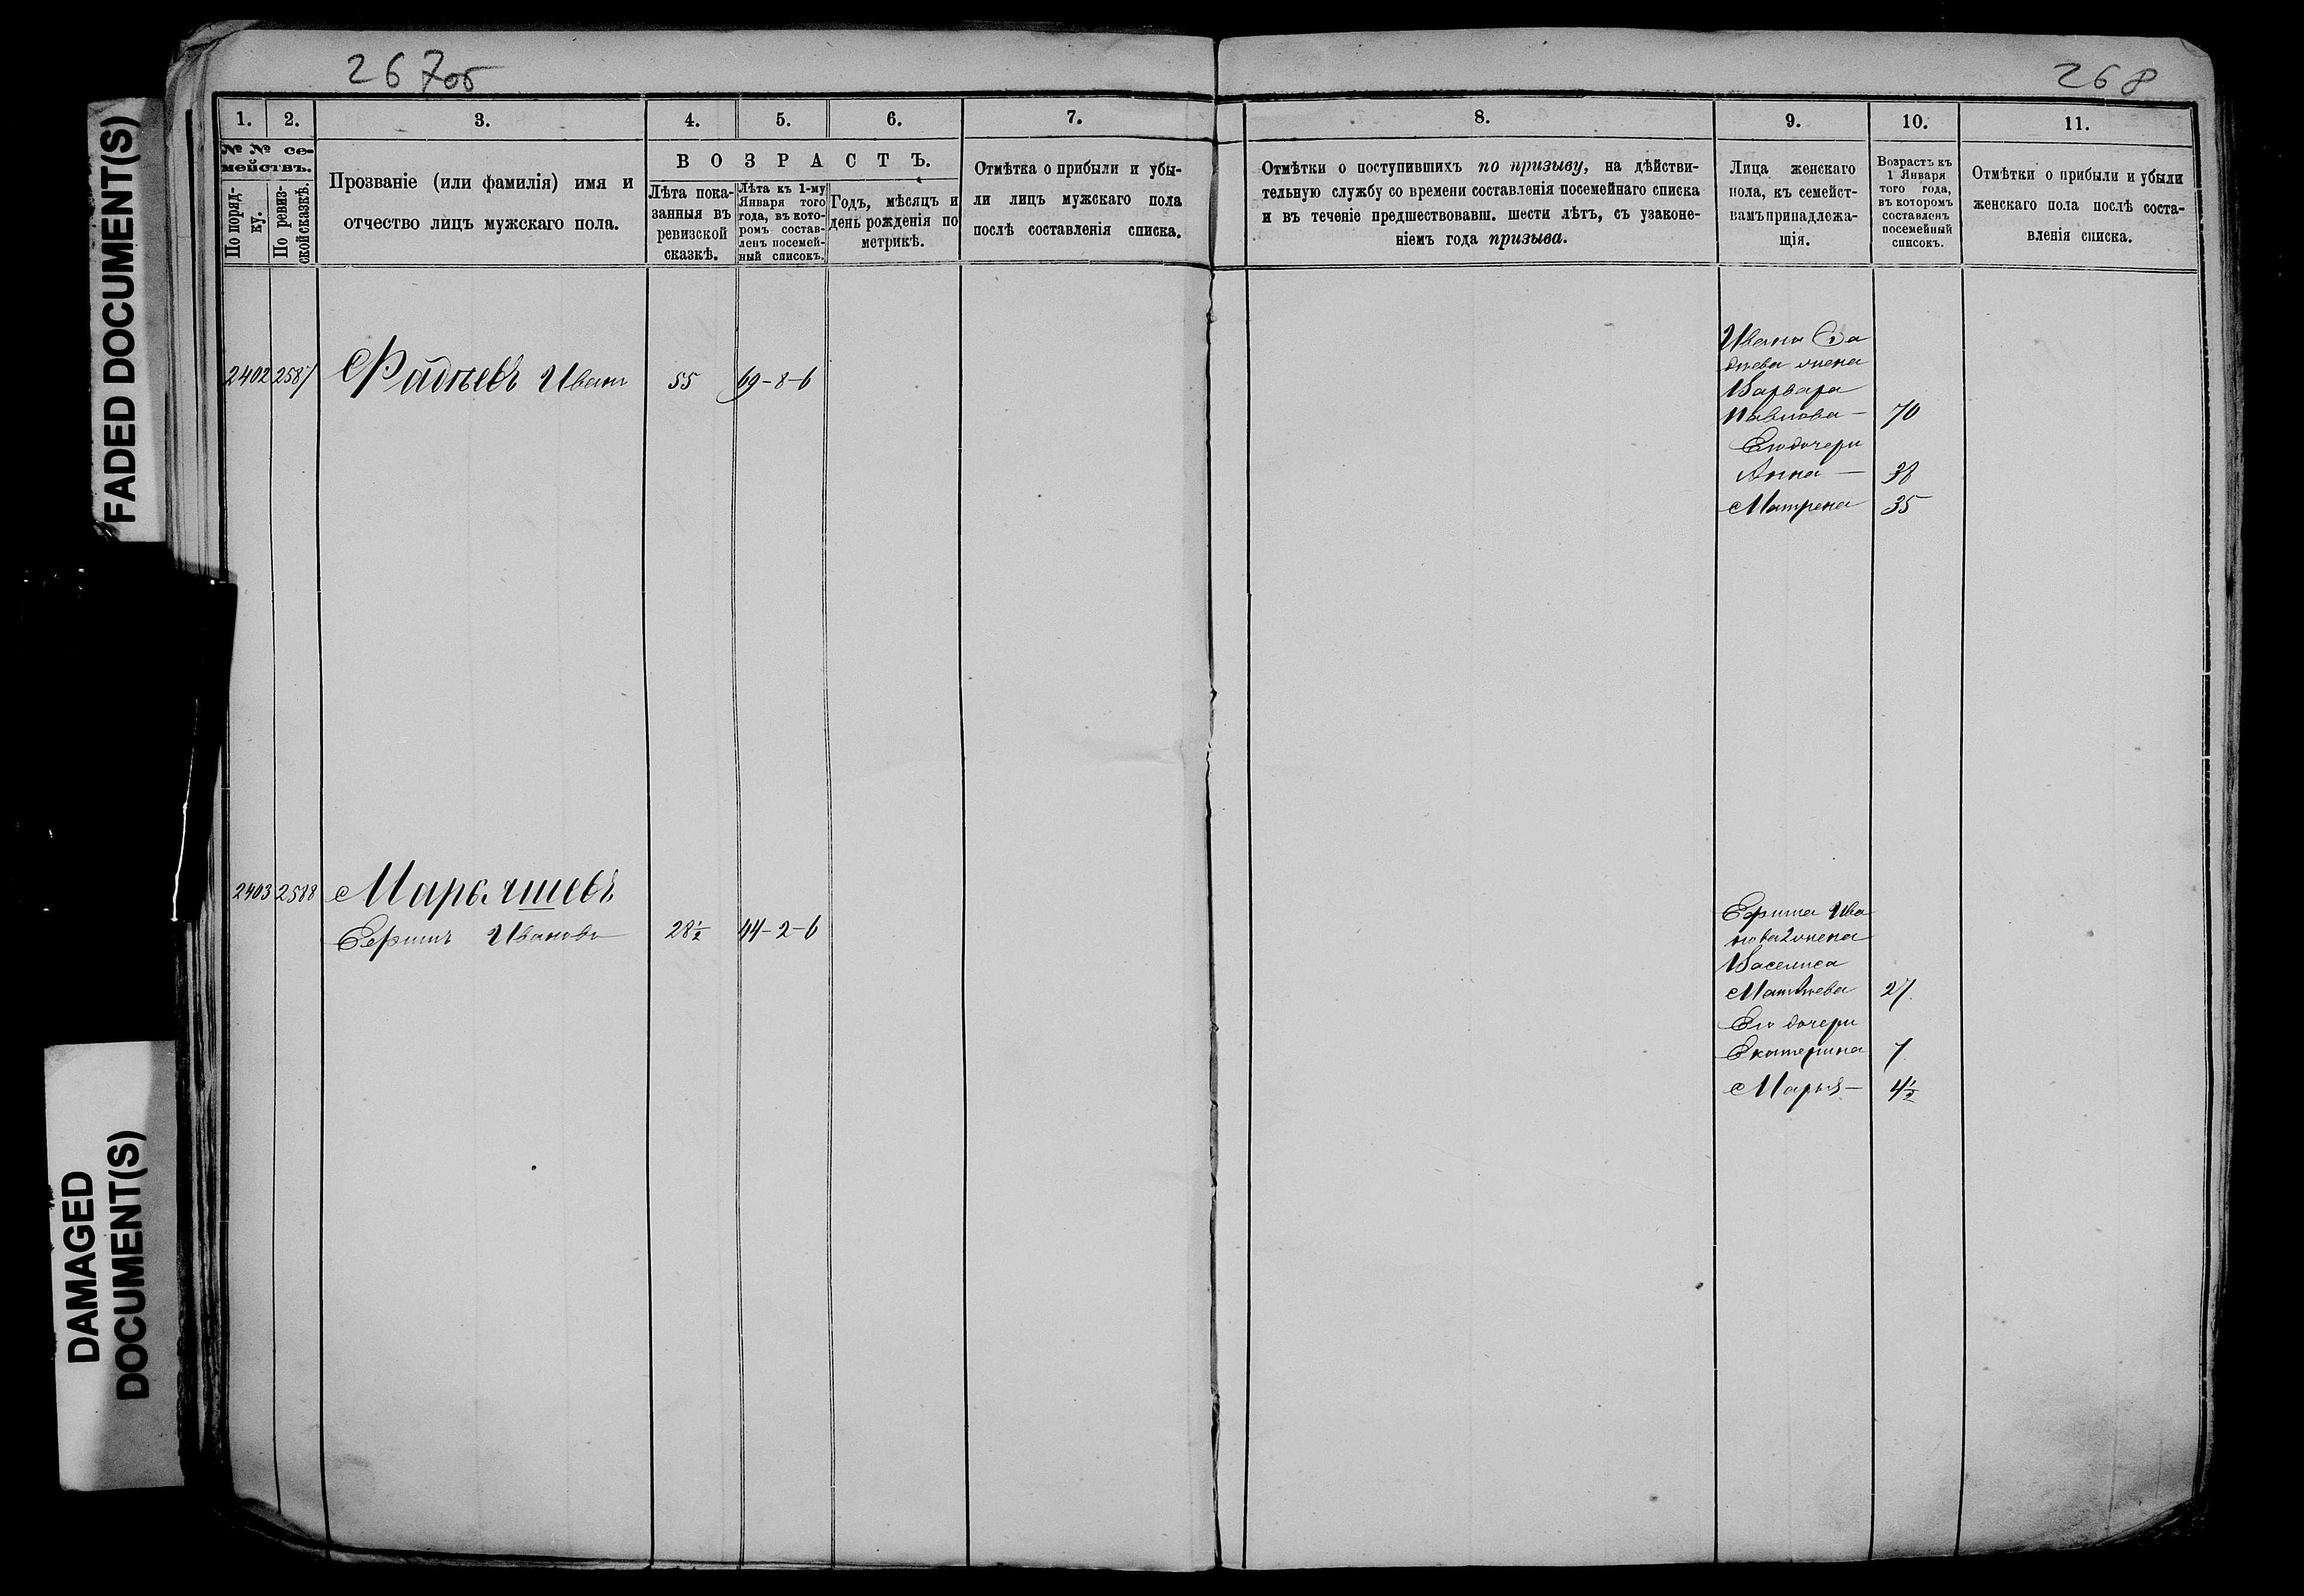 267об
268
FADED DOCUMENT(S)
DAMAGED
DOCUMENT(S)
1.
2.
3.
4.
5.
6.
7.
№ № се-
мействъ.
По поряд-
ку.
По ревиз-
ской сказкѣ.
Прозваніе (или фамилія) имя и
отчество лицъ мужскаго пола.
ВОЗРАСТЪ.
Лѣта пока-
занныя въ
ревизской
сказкѣ.
Лѣта къ 1-му
Января того
года, въ кото-
ромъ состав-
ленъ посемей-
ный списокъ.
Годъ, мѣсяцъ и
день рожденія по
метрикѣ.
Отмѣтка о прибыли и убы-
ли лицъ мужскаго пола
послѣ составленія списка.
8.
9.
10.
11.
Отмѣтки о поступившихъ по призыву, на дѣйстви-
тельную службу со времени составленія посемейнаго списка
и въ теченіе предшествовавш. шести лѣтъ, съ узаконе-
ніемъ года призыва.
Лица женскаго
пола, къ семейст-
вамъ принадлежа-
щія.
Возрастъ къ
1 Января
того года,
въ которомъ
составленъ
посемейный
списокъ.
Отмѣтки о прибыли и убыли
женскаго пола послѣ соста-
вленія списка.
2402 2587 Фадѣевъ Иванъ 55 69-8-6
Ивана Фа
дѣева жена
Варвара
Павлова — 70
Его дочери
Анна — 38
Матрена 35
2403 2588
Иванова 28½ 44-2-6
Ива
нова 2 жена
Василиса
Матвѣева 27
Его дочери
Екатерина 7
Марья — 4½